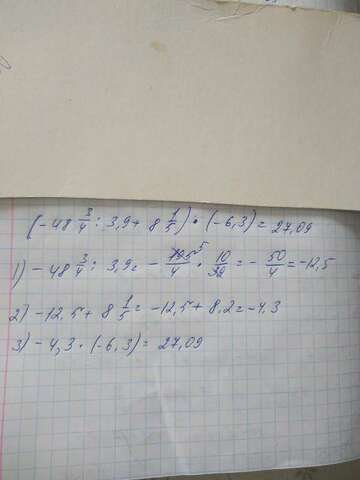 (-48 3/4 : 3,9 + 8 1/5) • (-6,3) = 27,09
1) -48 3/4 : 3,9 = - 195 5/4 • 10/39 = - 50/4 = -12,5
2) -12,5 + 8 1/5 = -12,5 + 8,2 = -4,3
3) -4,3 • (-6,3) = 27,09